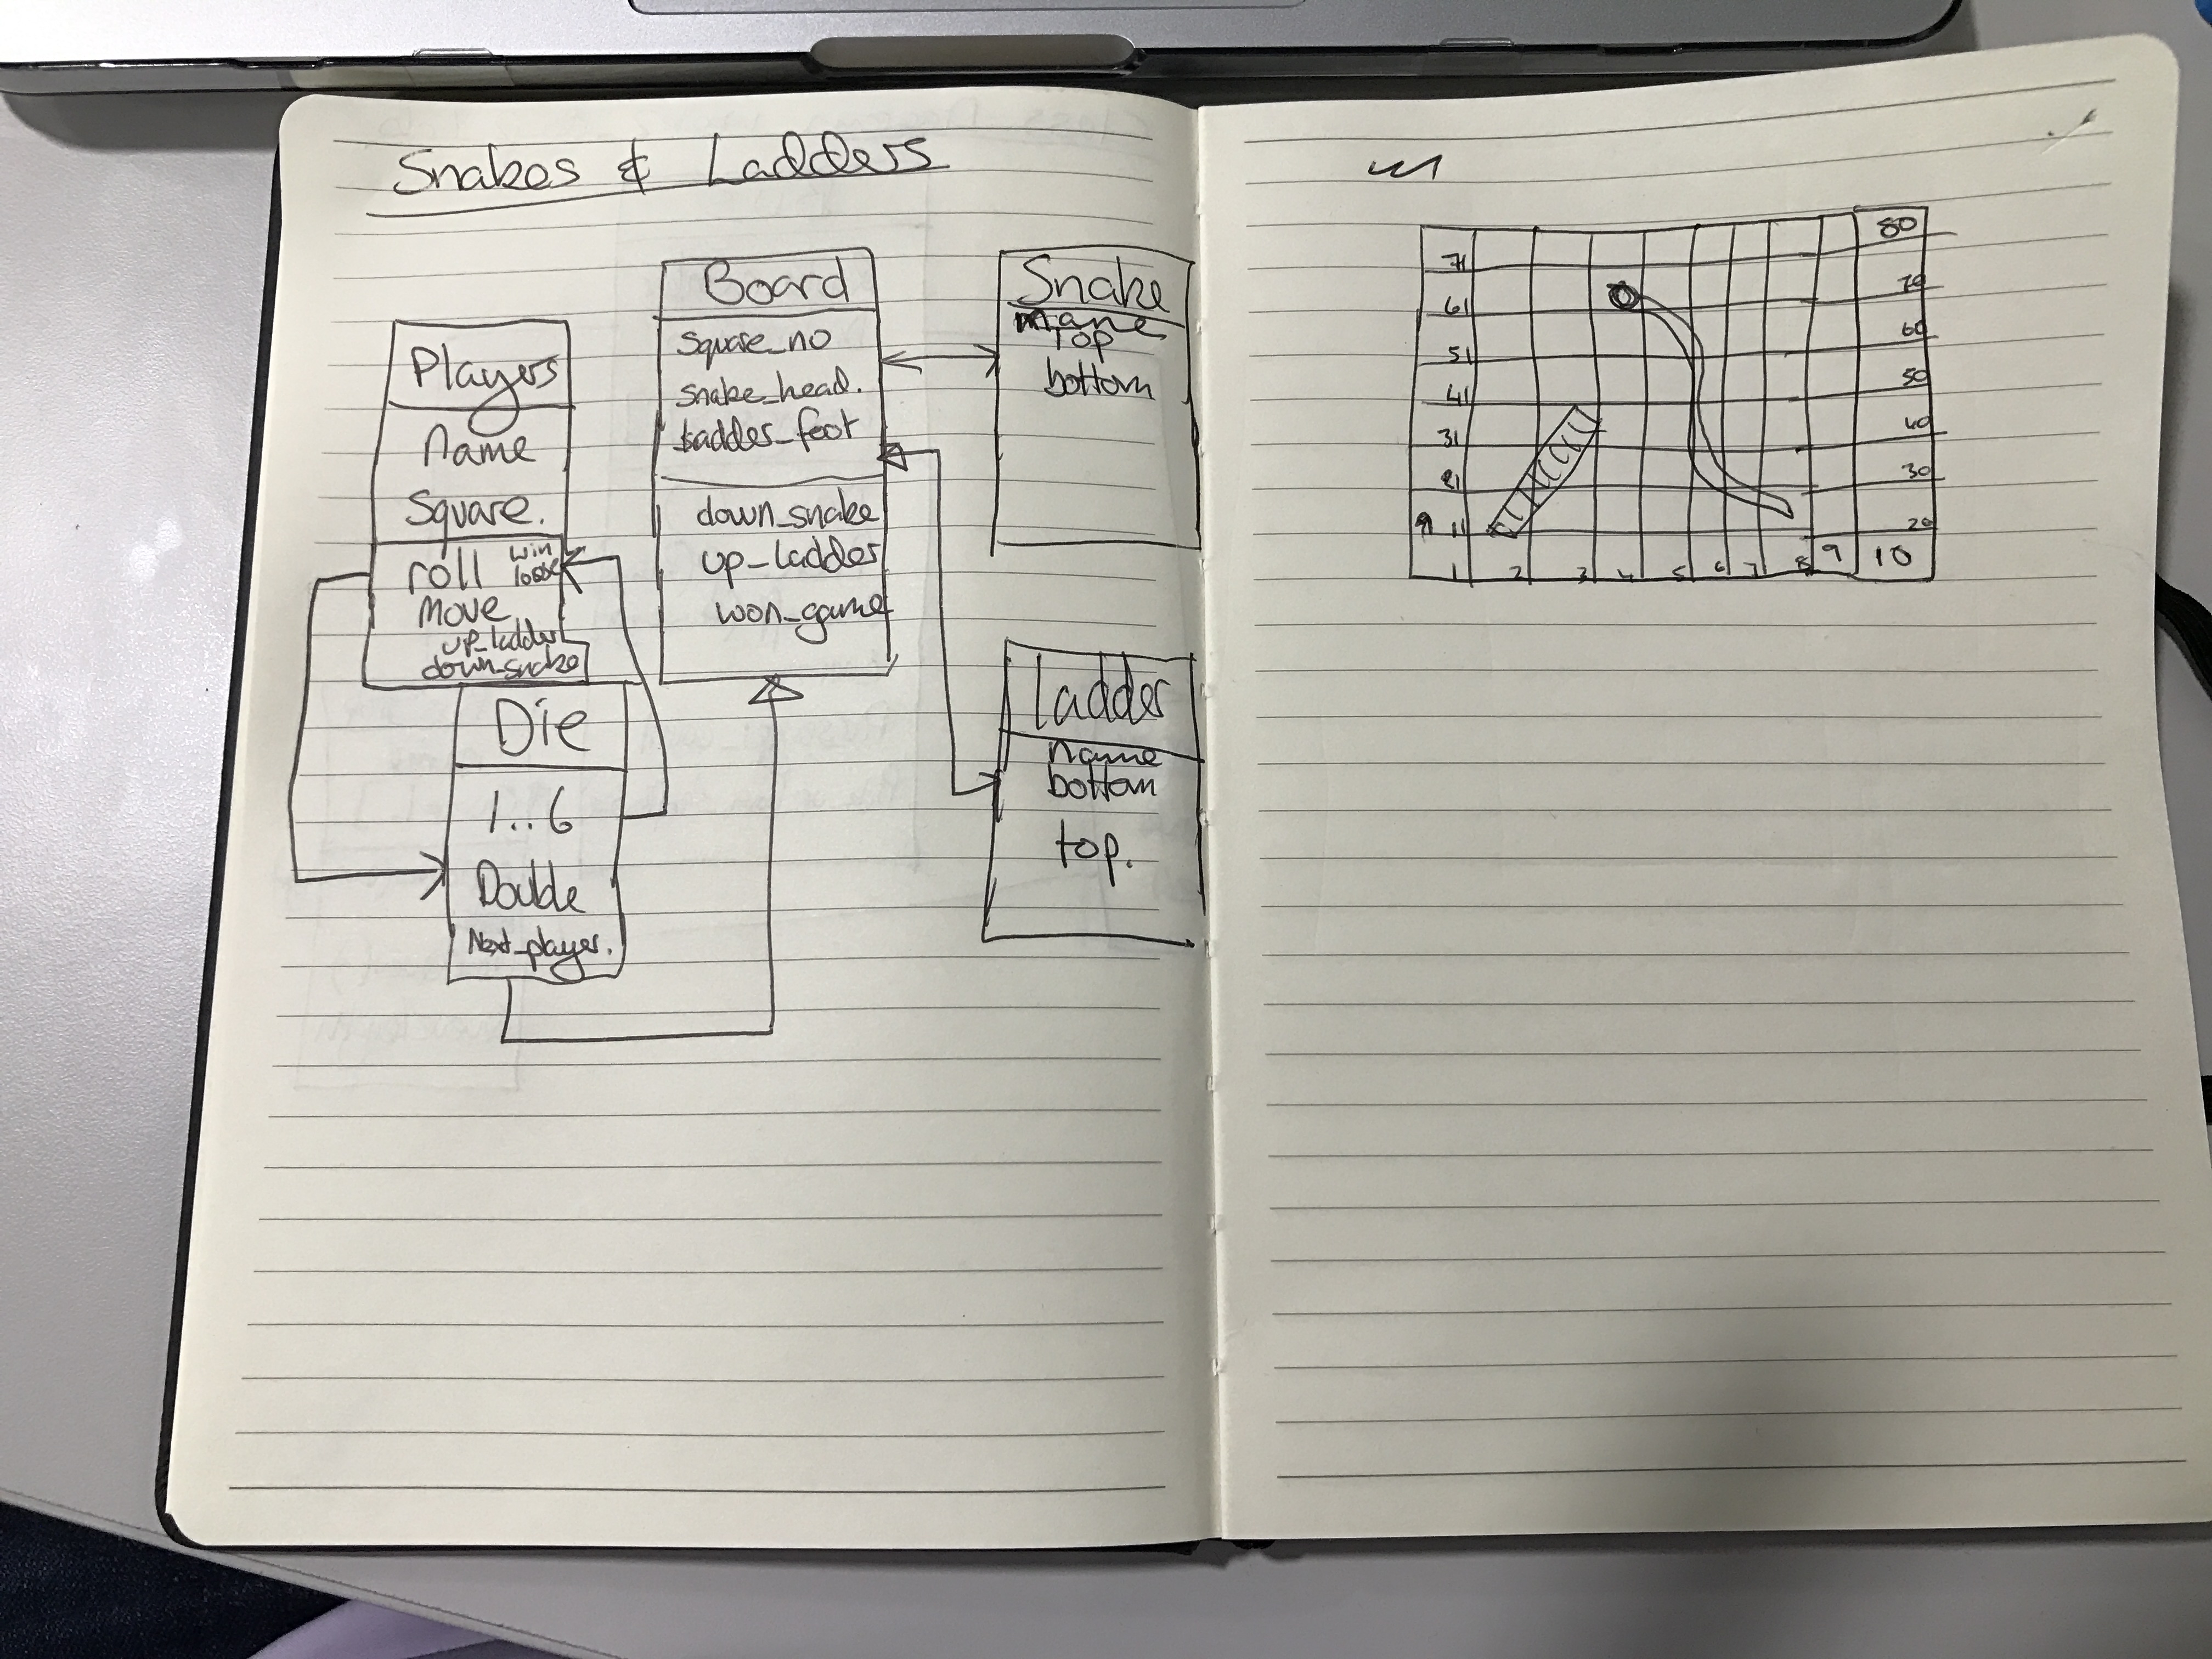 Snakes & Ladders
Players
name
Square.
roll
win
loose
Move
up_ladder
down_snake
Die
1..6
Double
Next_player.
Board
square_no
snake_head.
ladder_foot
down_snake
up_ladder
won_game
Snake
name
top
bottom
Ladder
name
bottom
top.
80
71
61 70
51 60
41 50
31 40
21 30
11 20
1 2 3 4 5 6 7 8 9 10